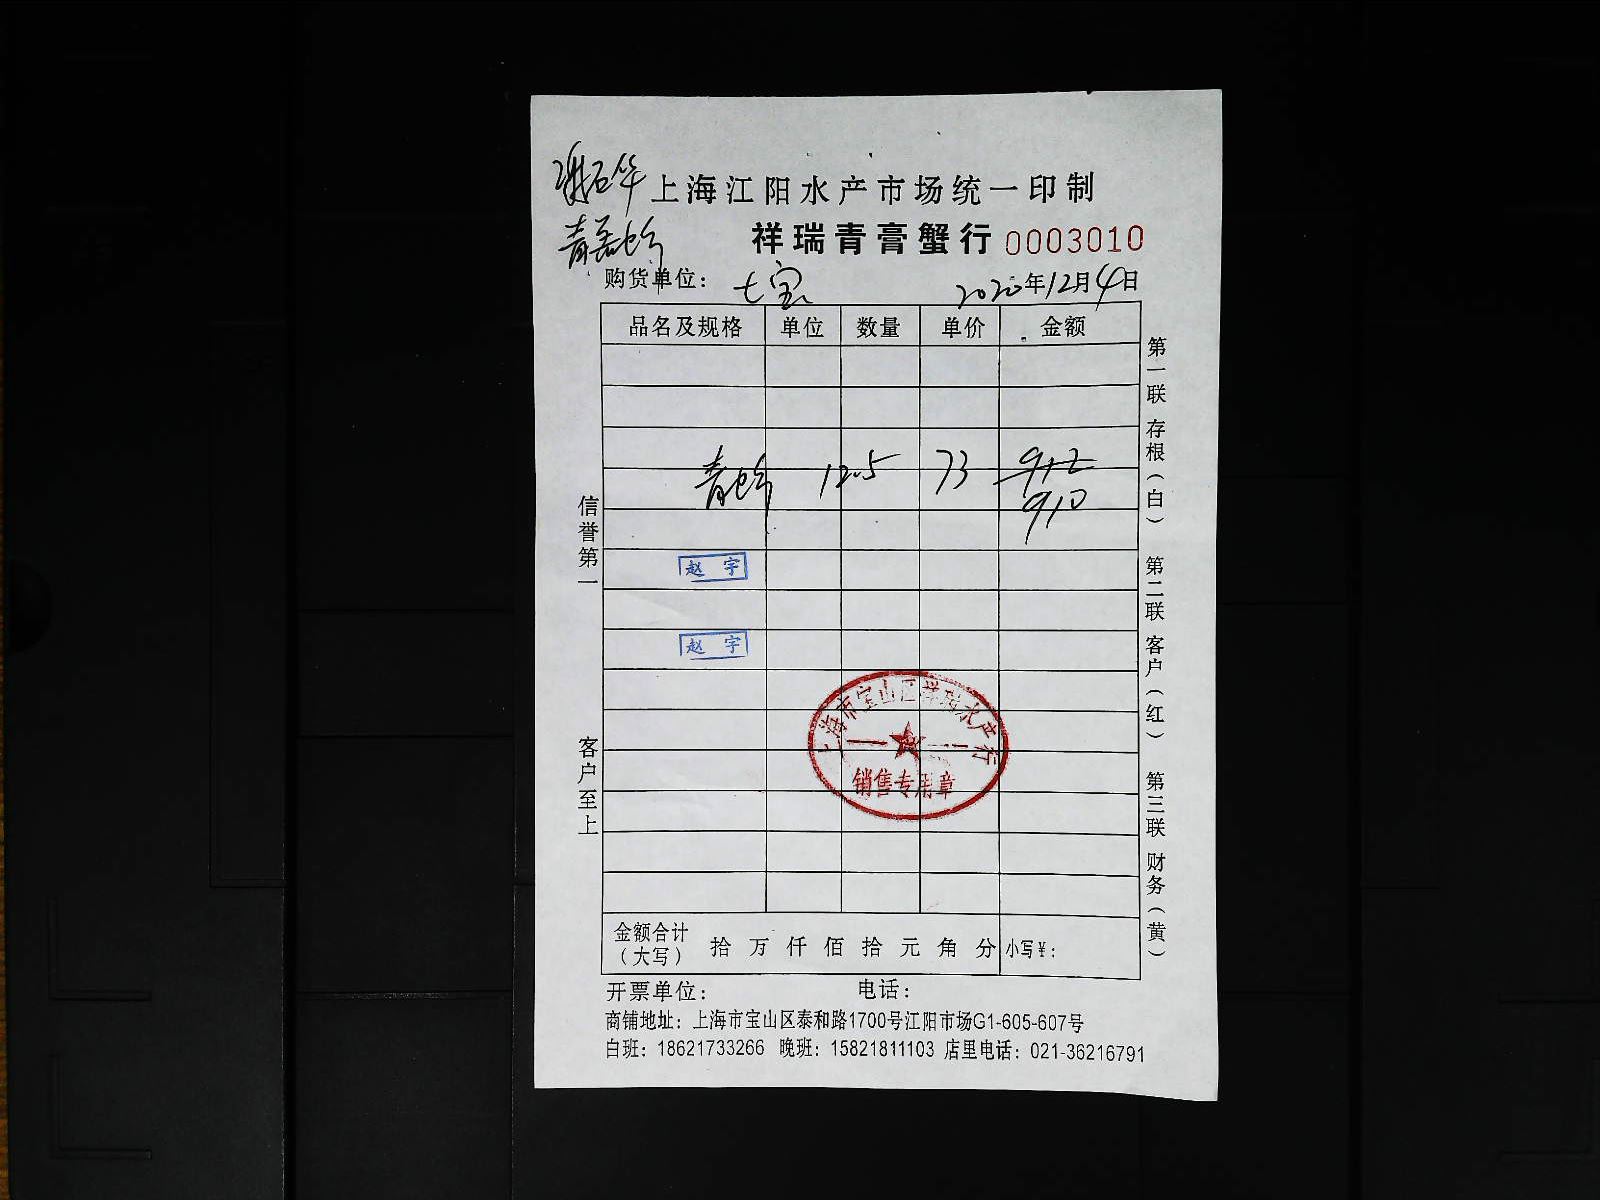 上海江阳水产市场统一印制
祥瑞青膏蟹行 0003010
购货单位： 七宝 2020年12月4日
品名及规格 单位 数量 单价 金额
青 12.5 73 912
910
赵 宇
赵 宇
上海市宝山区祥瑞水产行
销售专用章
信誉第一
客户至上
第一联 存根（白） 第二联 客户（红） 第三联 财务（黄）
金额合计
（大写） 拾 万 仟 佰 拾 元 角 分 小写¥：
开票单位： 电话：
商铺地址：上海市宝山区泰和路1700号江阳市场G1-605-607号
白班：18621733266 晚班：15821811103 店里电话：021-36216791